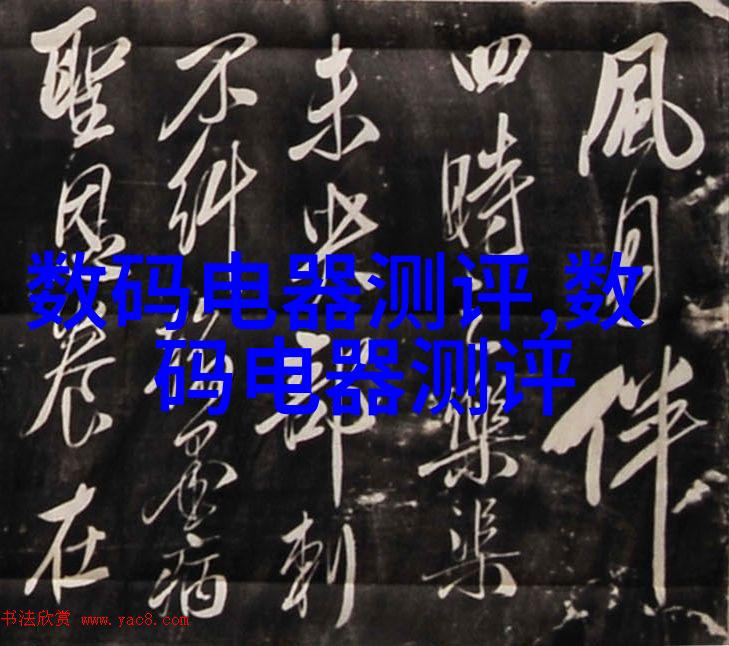 風月伴
四時樂渠
未部刺
不糾病
聖恩在
数码电器测评,数
码电器测评
书法欣赏 www.yac8.com